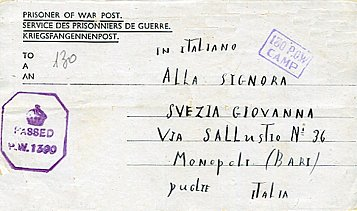 PRISONER OF WAR POST.
SERVICE DES PRISONNIERS DE GUERRE.
KRIEGSFANGENNENPOST.
TO
A
AN
130
IN ITALIANO
160 P.O.W
CAMP
ALLA SIGNORA
SVEZIA GIOVANNA
VIA SALLUSTIO Nº 36
MONOPOLI (BARI)
PUGLIE ITALIA
PASSED
P.W. 1390